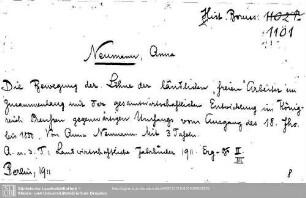 Hist. Boruss: 1102 p
1101
Neumann, Anna
Die Bewegung der Löhne der ländlichen "freien" Arbeiter im
Zusammenhang mit der gesamtwirtschaftlichen Entwicklung im König-
reich Preußen gegenwärtigen Umfangs vom Ausgang des 18. Jhs.
bis 1850. Von Anna Neumann. Mit 3 Tafeln.
A. u. d. T.: Landwirtschaftliche Jahrbücher 1911. Erg-Bd III
Berlin, 1911
8
Sächsische Landesbibliothek -
Staats- und Universitätsbibliothek Dresden